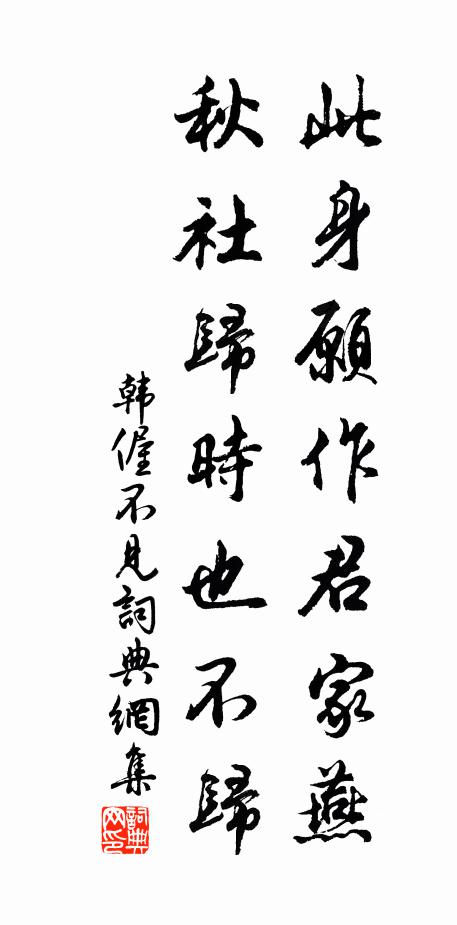 此身願作君家燕
秋社歸時也不歸
韩偓不見詞典網集
詞典网印